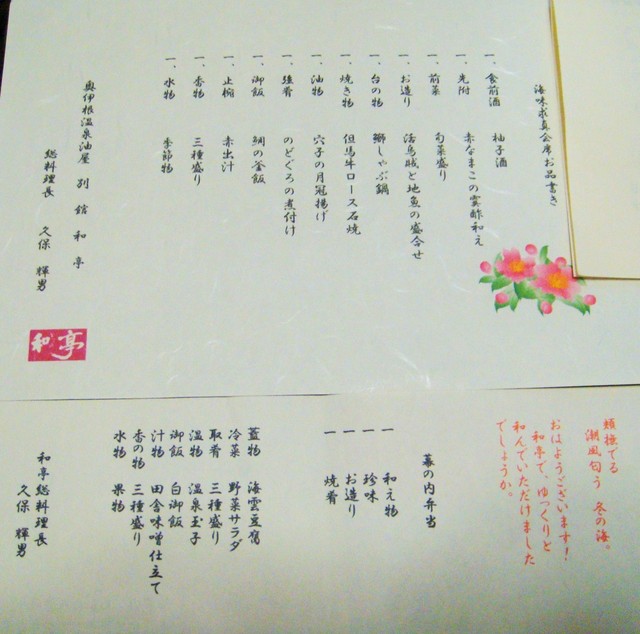 海味求真会席お品書き
一、食前酒　柚子酒
一、先附　赤なまこの霙酢和え
一、前菜　旬菜盛り
一、お造り　活烏賊と地魚の盛合せ
一、台の物　鰤しゃぶ鍋
一、焼き物　但馬牛ロース石焼
一、油物　穴子の月冠揚げ
一、強肴　のどぐろの煮付け
一、御飯　鯛の釜飯
一、止椀　赤出汁
一、香物　三種盛り
一、水物　季節物
奥伊根温泉油屋　別館　和亭
総料理長　久保　輝男
和亭
頬撫でる
潮風匂う　冬の海。
おはようございます！
和亭で、ゆっくりと
和んでいただけました
でしょうか。
幕の内弁当
一　和え物
一　珍味
一　お造り
一　焼肴
蓋物　海雲豆腐
冷菜　野菜サラダ
取肴　三種盛り
温物　温泉玉子
御飯　白御飯
汁物　田舎味噌仕立て
香の物　三種盛り
水物　果物
和亭総料理長
久保　輝男